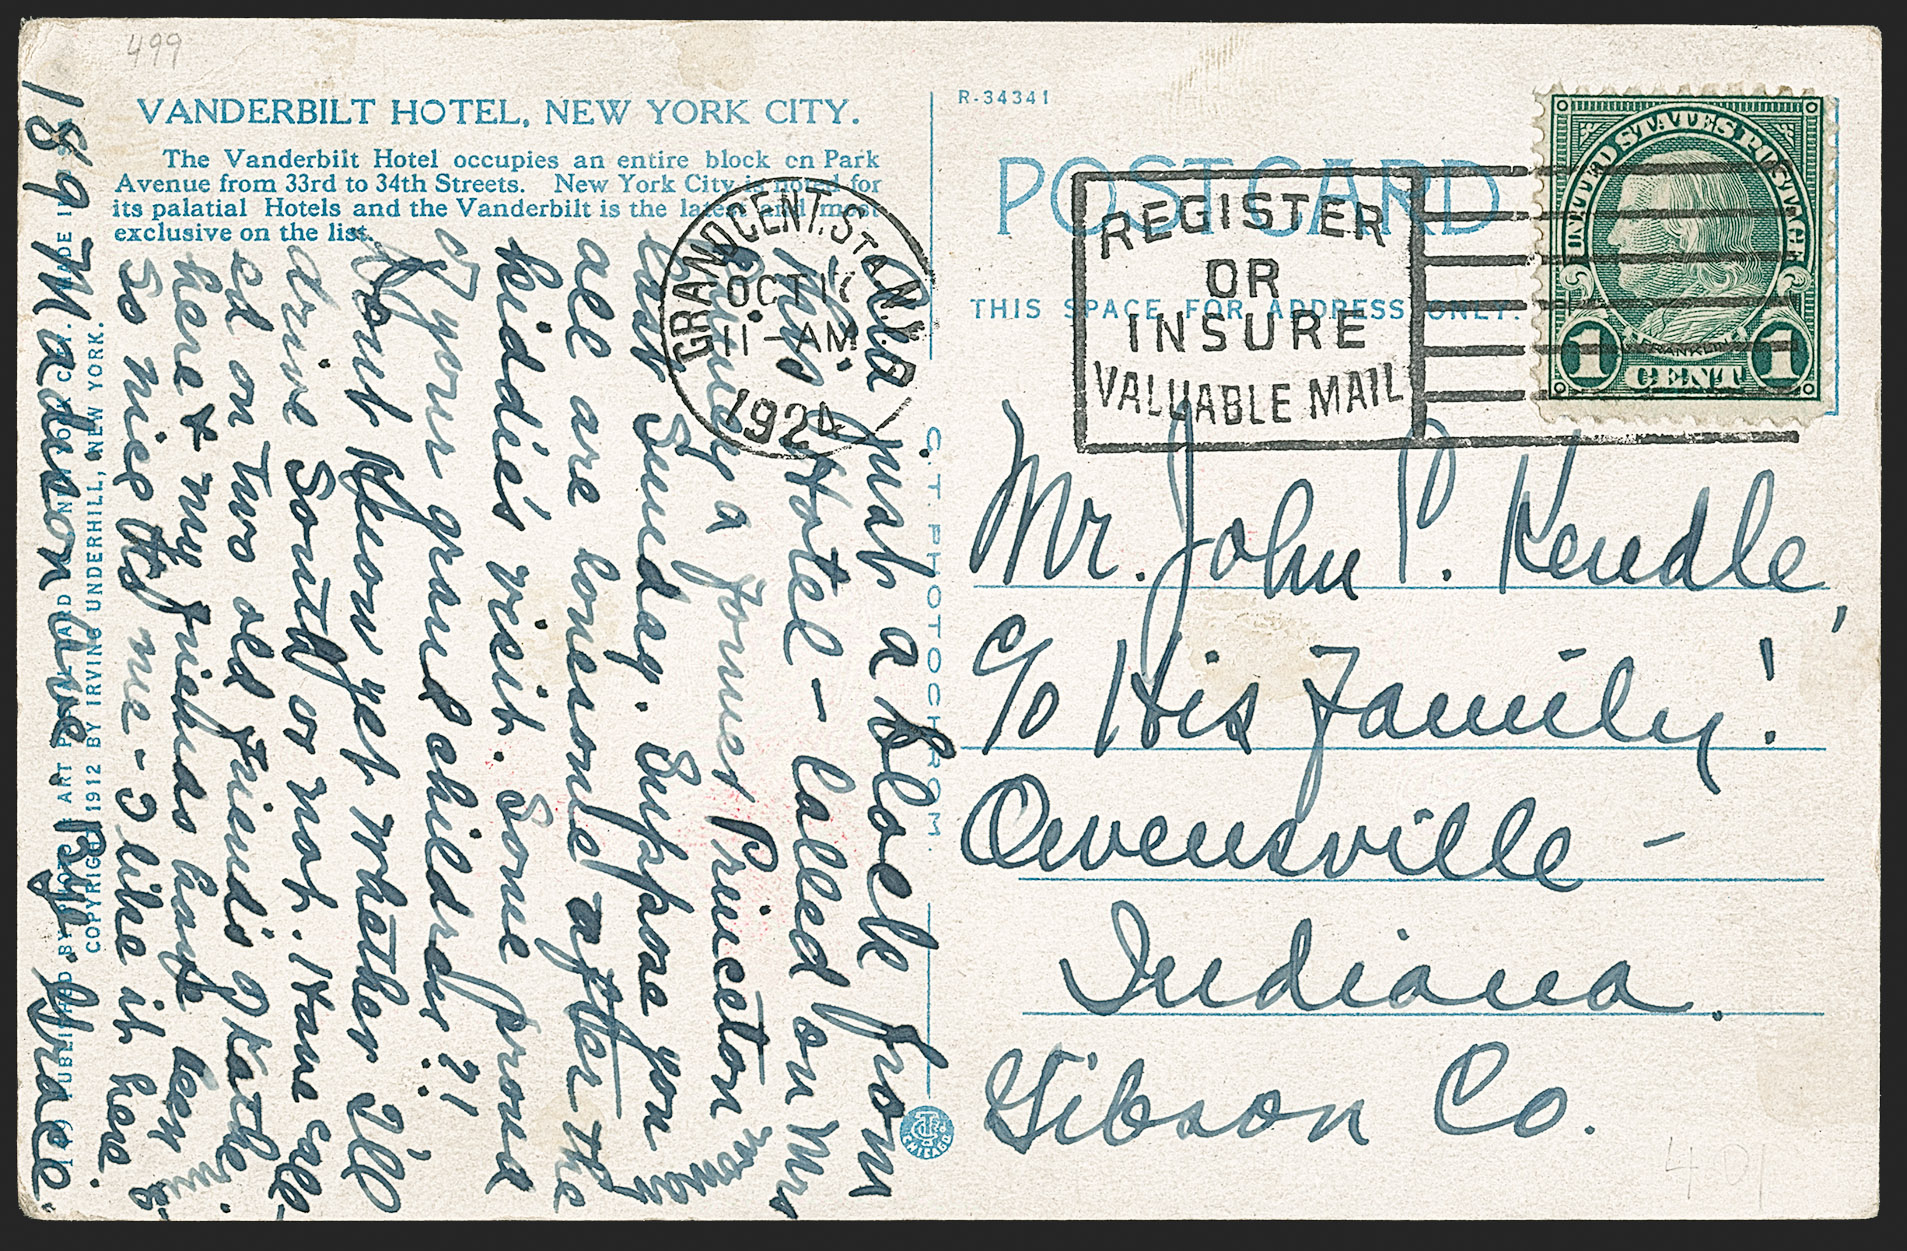 499
VANDERBILT HOTEL, NEW YORK CITY.
The Vanderbilt Hotel occupies an entire block on Park
Avenue from 33rd to 34th Streets. New York City is noted for
its palatial Hotels and the Vanderbilt is the latest and most
exclusive on the list.
just a block from
this Hotel - called on Mrs
a former Princeton woman
last Sunday. Suppose you
all are lonesome after the
kiddie's visit. Some proud
of your grand children ?!
Don't know yet whether I'll
drive South or not. Have call-
ed on two old friends of Father
here & my friends have been
so nice to me - I like it here
189 Madison ave - Grace
MADE IN U.S.A.
COPYRIGHT 1912 BY IRVING UNDERHILL, NEW YORK.
C. T. PHOTOCHROM.
CHICAGO
R-34341
POST CARD
THIS SPACE FOR ADDRESS ONLY.
GRAND CENT. STA. N.Y.
OCT
11 - AM
1924
REGISTER
OR
INSURE
VALUABLE MAIL
UNITED STATES POSTAGE
FRANKLIN
1 CENT 1
Mr. John P. Kendle,
c/o His Family!
Owensville -
Indiana.
Gibson Co.
401